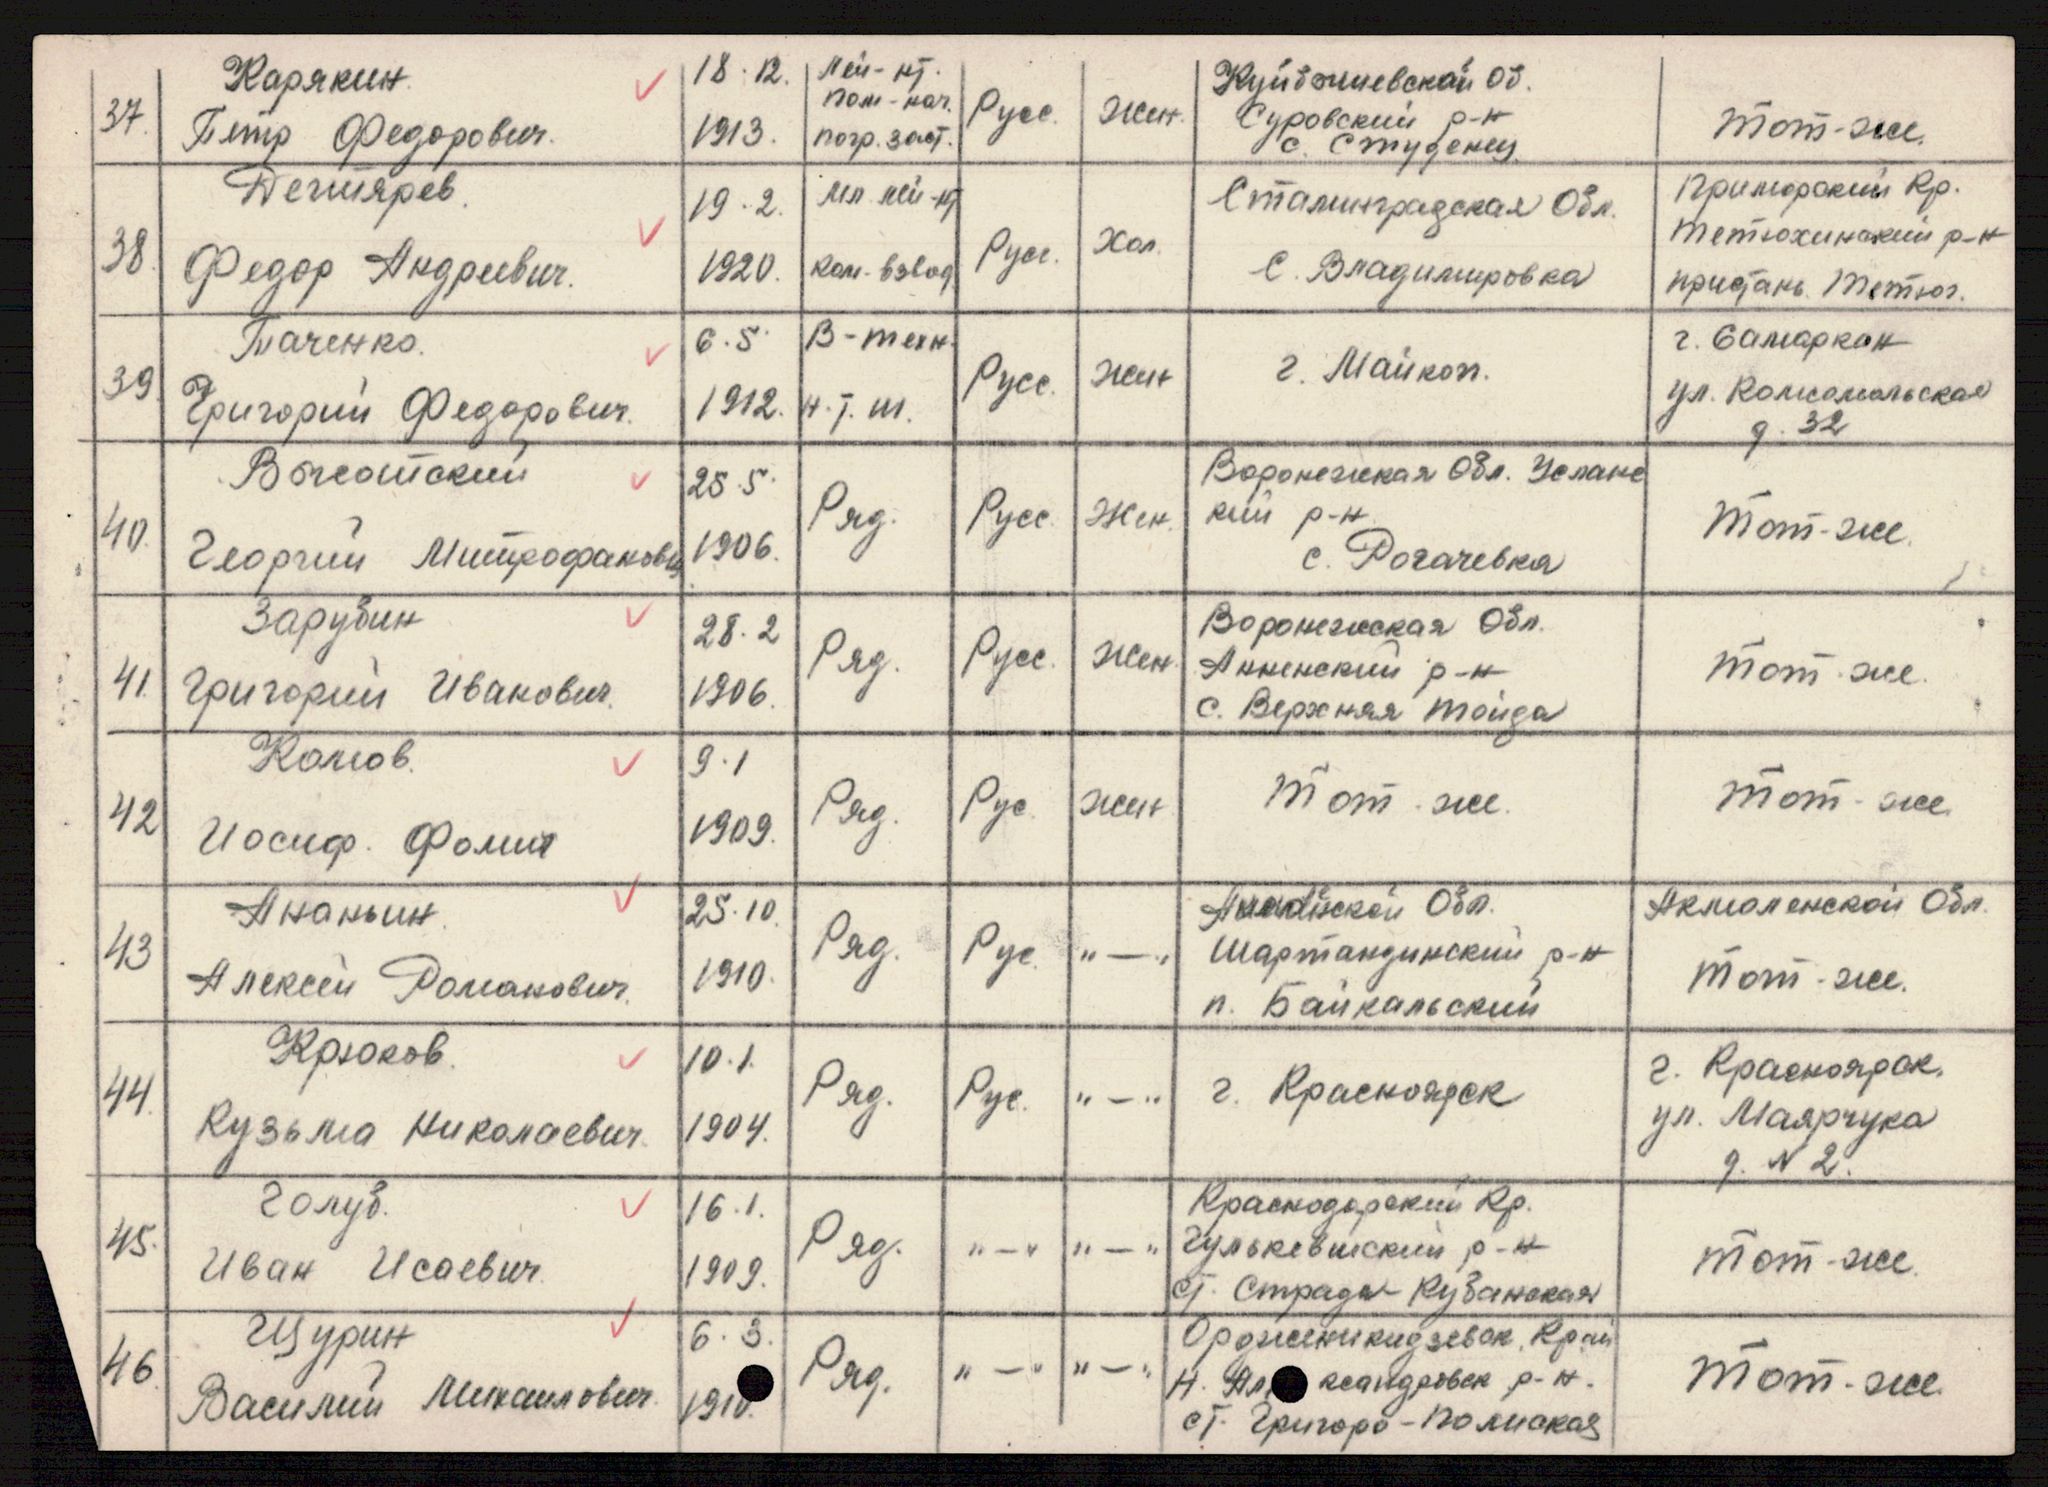 37. Карякин. Петр Федорович.
18.12. 1913.
Лей-нт. пом-нач. погр. заст.
Русс. Жен.
Куйбышевской Об.
Суровский р-н
с. Студенец.
Тот-же.
38. Дегтярев. Федор Андреевич.
19.2. 1920.
Мл. лей-нт ком-взвод
Русс. Хол.
Сталинградская Обл.
С. Владимировка
Приморский Кр.
Тетюхинский р-н
пристань Тетюх.
39. Ткаченко. Григорий Федорович.
6.5. 1912.
В-техн. н.т.ш.
Русс. Жен
г. Майкоп.
г. Самаркан
ул. Комсомольская
д. 32
40. Георгий Митрофанович
25.5. 1906.
Ряд.
Русс. Жен.
Воронежская Обл. Усманс
кий р-н
с. Рогачевка
Тот-же.
41. Зарубин Григорий Иванович.
28.2 1906.
Ряд.
Русс. Жен.
Воронежская Обл.
Анненский р-н
с. Верхняя Тойда
Тот-же.
42 Комов. Иосиф. Фомич
9.1 1909.
Ряд.
Рус. Жен
Тот-же.
Тот-же.
43 Ананьин. Алексей Романович.
25.10. 1910.
Ряд.
Рус. "—"
Обл.
Шартандинский р-н
п. Байкальский
Акмоленской Обл.
Тот-же.
44. Крюков. Кузьма Николаевич.
10.1. 1904.
Ряд.
Рус. "—"
г. Красноярск
г. Красноярск.
ул. Маярчука
д. N 2.
45. Голуб. Иван Исаевич.
16.1. 1909.
Ряд.
"—" "—"
Краснодарский Кр.
Гулькевиский р-н
ст. Страда-Кубанская
Тот-же.
46. Щурин Василий Михаилович.
6.3. 1910.
Ряд.
"—" "—"
Орджоникидзевск. Край
Н. Александровск р-н.
ст. Григоро-Полиская
Тот-же.